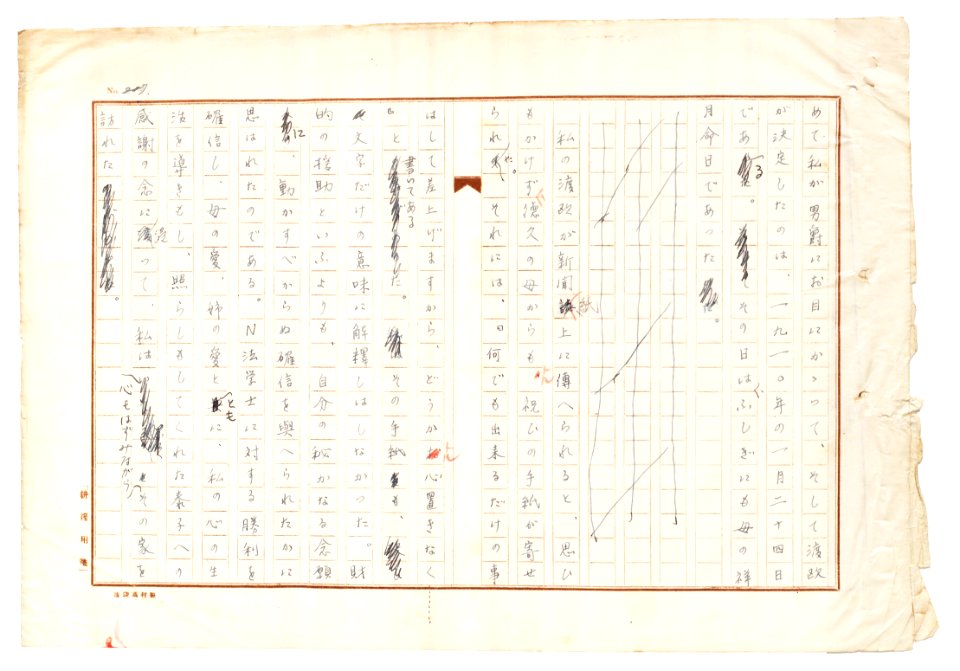 No. 207.
めて私が男爵にお目にかゝつて、そして渡欧
が決定したのは、一九一〇年の一月二十四日
である。その日はふしぎにも母の祥
月命日であつた。
私の渡欧が新聞紙上に傳へられると、思ひ
もかけず德久の母からも祝ひの手紙が寄せ
られた。それには、「何でも出来るだけの事
はして差上げますから、どうかお心置きなく
」と書いてある。その手紙も、
文字だけの意味に解釋しはしなかつた。財
的の援助といふよりも、自分の秘かなる念願
に、動かすべからぬ確信を與へられたかに
思はれたのである。N法学士に対する勝利を
確信し、母の愛、姉の愛とともに、私の心の生
活を導きもし、照らしもしてくれた泰子への
感謝の念に浸つて、私は心もはずみながらその家を
訪れた。